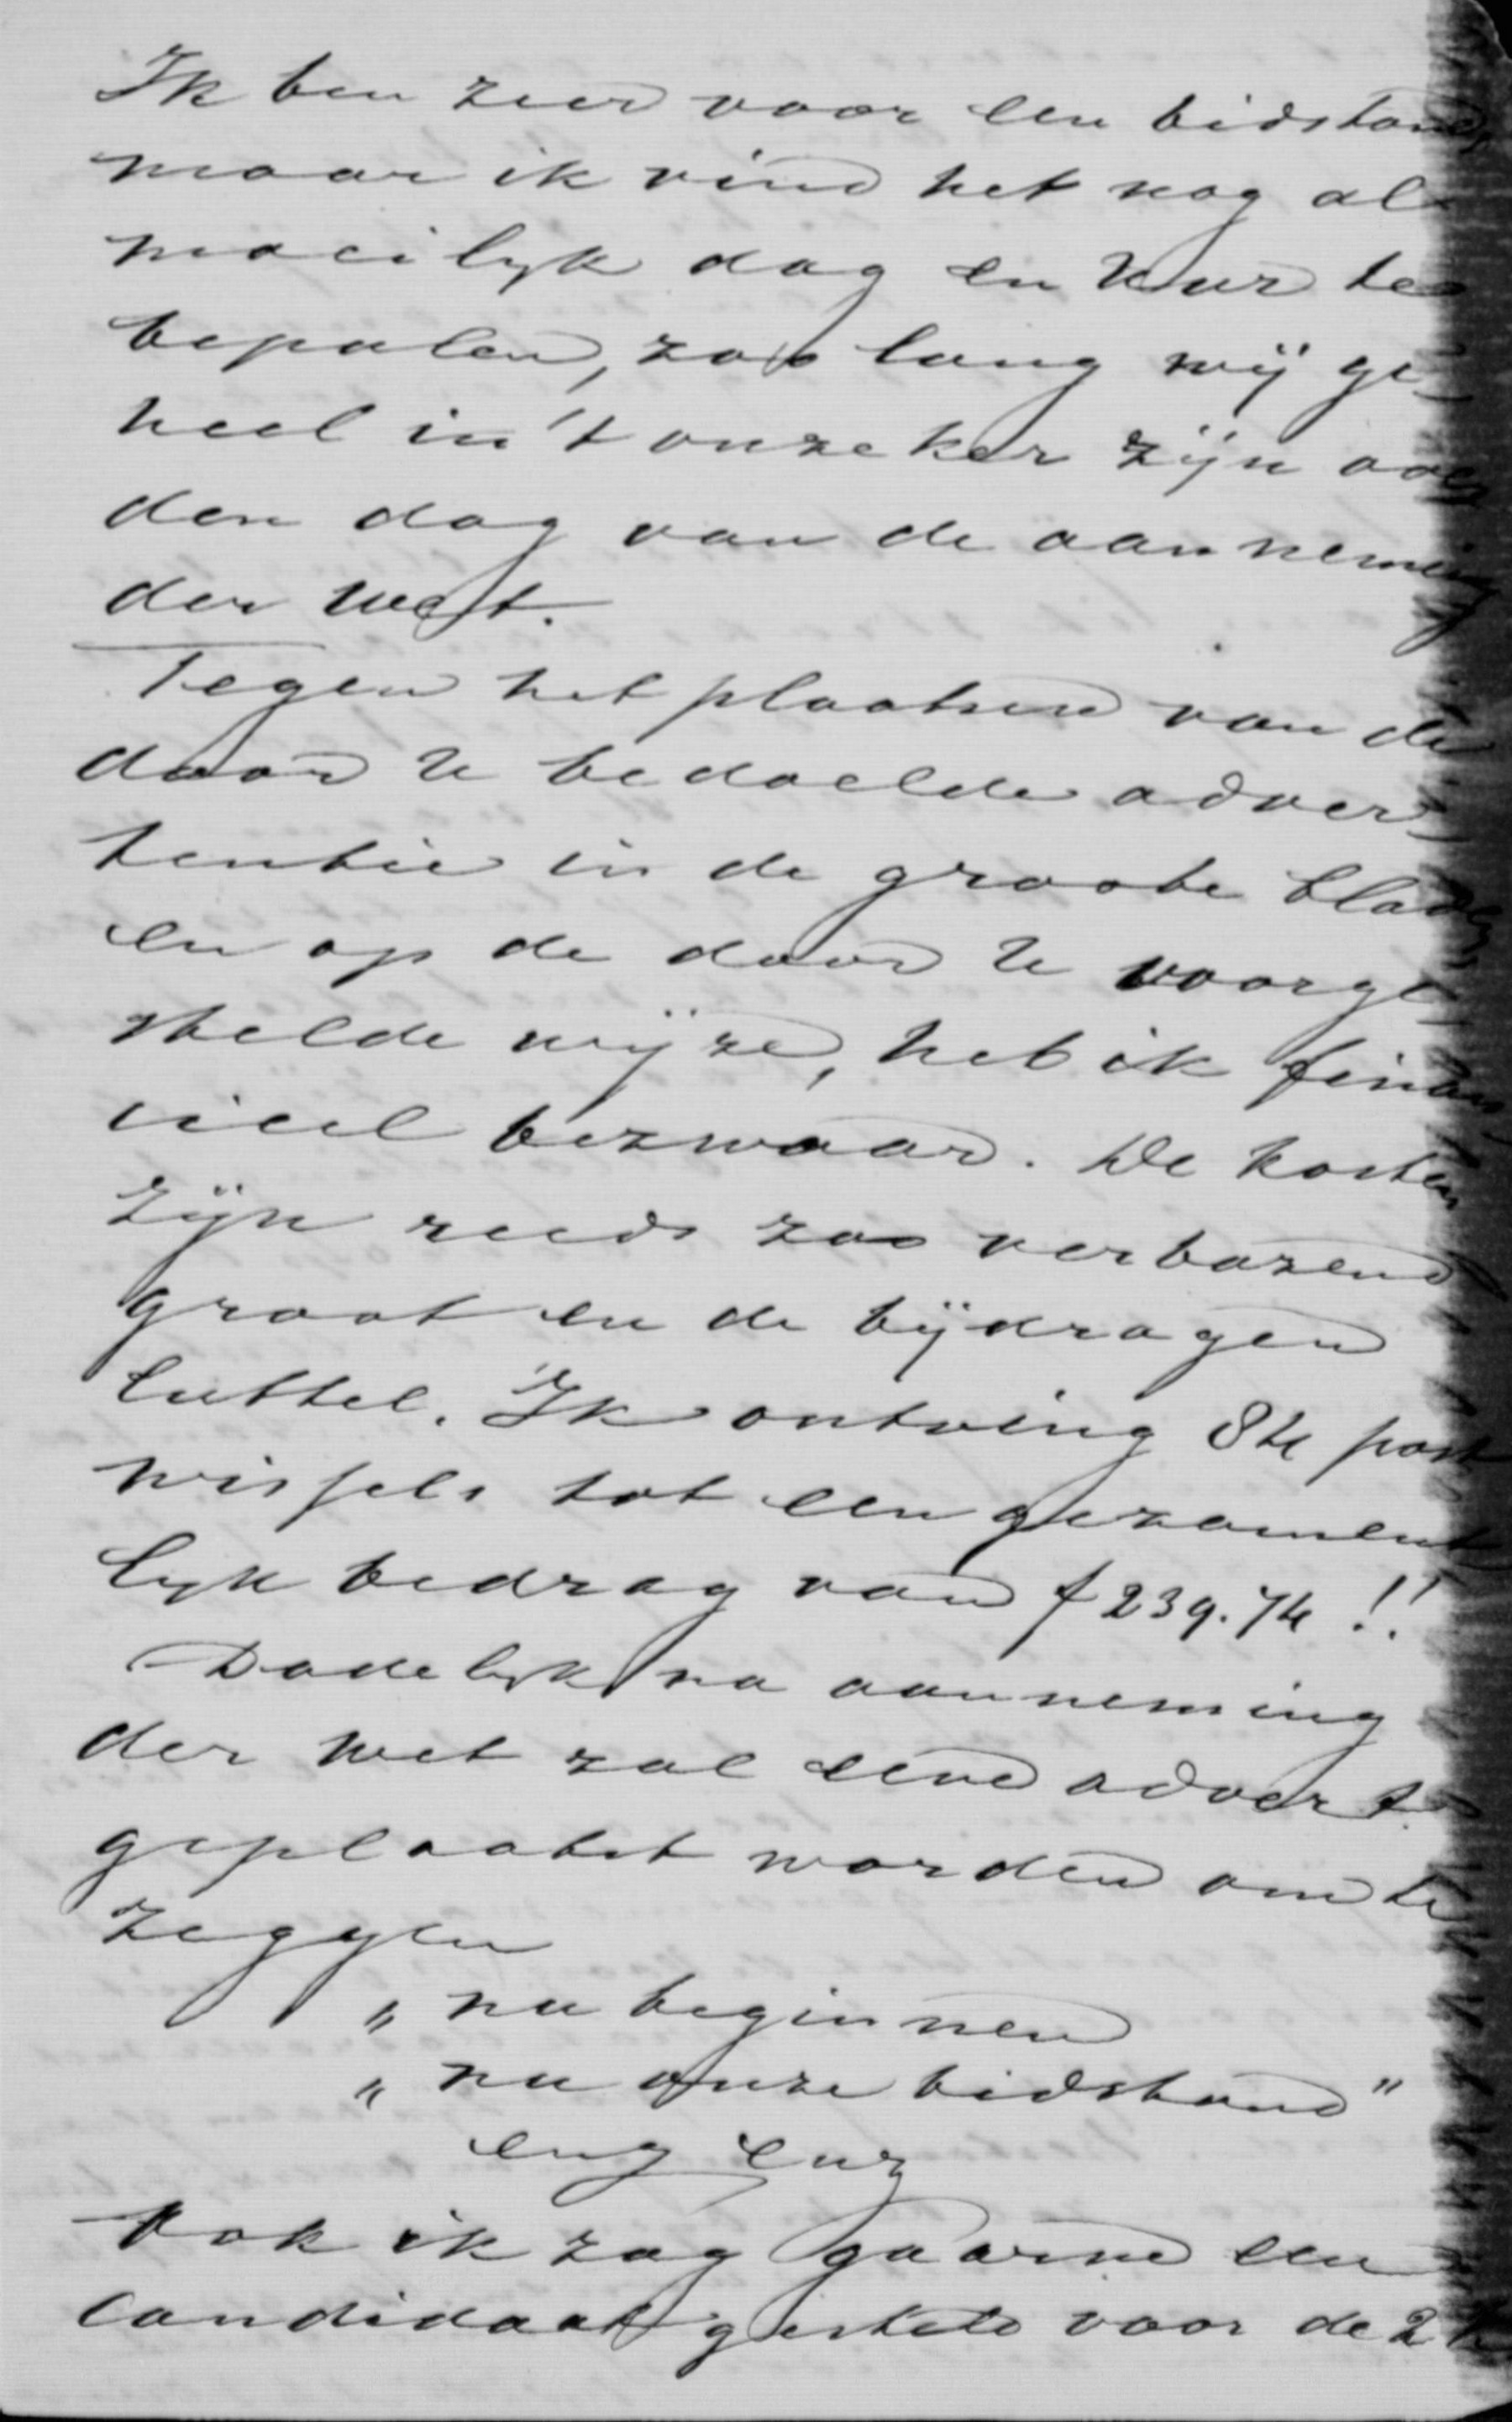 Ik ben zeer voor een bidstond
maar ik vind het nog al
moeilyk dag en uur te
bepalen, zoo lang wij ge-
heel in 't onzeker zijn over
den dag van de aanneming
der wet.
Tegen het plaatsen van de
door U bedoelde adver-
tentie in de groote bladen
en op de door U voorge-
stelde wijze, heb ik finan-
cieel bezwaar. De kosten
zijn reeds zoo verbazend
groot en de bijdragen
luttel. Ik ontving 84 post
wissels tot een gezament
lyk bedrag van f 239.74 !!
Dadelyk na aanneming
der wet zal eene advert.
geplaatst worden om te
zeggen
„ nu beginnen
„ nu onze bidstond"
enz enz
Ook ik zag gaarne een
candidaat gesteld voor de 2e